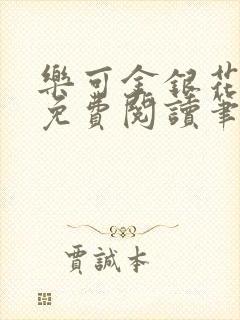 樂可金銀花
免費閱讀筆
賈誠本